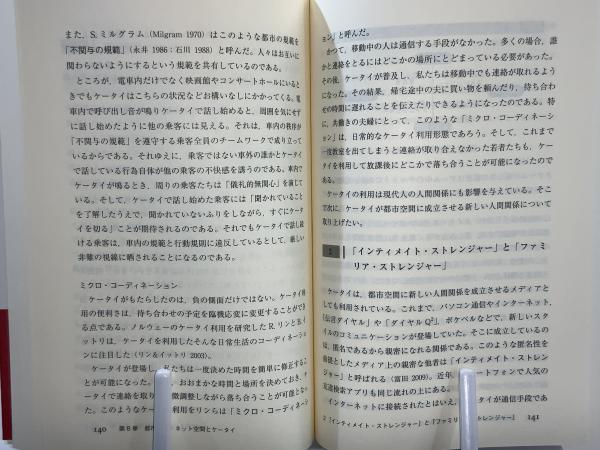 また、S.ミルグラム（Milgram 1970）はこのような都市の規範を
「不関与の規範」（永井 1986；石川 1988）と呼んだ。人々はお互いに
関わらないようにするという規範を共有しているのである。
ところが、電車内だけでなく映画館やコンサートホールにいると
きでもケータイはこちらの状況などお構いなしにかかってくる。電
車内で呼び出し音が鳴りケータイで話し始めると、周囲を気にせず
に話し始めたように他の乗客には見える。それは、車内の秩序が
「不関与の規範」を遵守する乗客全員のチームワークで成り立って
いるからである。それゆえに、乗客ではない車外の誰かとケータイ
で話している行為自体が他の乗客の不快感を誘うのである。車内で
ケータイが鳴るとき、周りの乗客たちは「儀礼的無関心」を演じて
いる。そして、ケータイで話し始めた乗客には「聞かれていること
を了解したうえで、聞かれていないふりをしながら、すぐにケータ
イを切る」ことが期待されるのである。それでもケータイで話し続
ける乗客は、車内の規範と行動規則に違反しているとして、厳しい
非難の視線に晒されることになるのである。
ミクロ・コーディネーション
ケータイがもたらしたのは、負の側面だけではない。ケータイ利
用の便利さは、待ち合わせの予定を臨機応変に変更することができ
る点である。ノルウェーのケータイ利用を研究した R.リンと B.イ
ットリは、ケータイを利用したそんな日常生活のコーディネーショ
ンに注目した（リン&イットリ 2003）。
ケータイが登場し、私たちは一度決めた時間を簡単に修正するこ
とが可能になった。 おおまかな時間と場所を決めておき、ケ
ータイで連絡を取り 微調整しながら落ち合うことが可能となっ
た。このようなケー 利用をリンらは「ミクロ・コーディネーシ
140 第8章 都 ネット空間とケータイ
ョン」と呼んだ。
かつて、移動中の人は通信する手段がなかった。多くの場合、誰
かと連絡をとるにはどこかの場所にとどまっている必要があった。
その後、ケータイが普及し、私たちは移動中でも連絡が取れるよう
になった。その結果、帰宅途中の夫に買い物を頼んだり、待ち合わ
せの時間に遅れることを伝えたりできるようになったのである。特
に、共働きの夫婦にとって、このような「ミクロ・コーディネーショ
ン」は、日常的なケータイ利用形態であろう。そして、これまで
一度教室を出てしまうと連絡が取り合えなかった若者たちも、ケー
タイを利用して放課後にどこかで落ち合うことが可能になったので
ある。
ケータイの利用は現代人の人間関係にも影響を与えている。そこ
で次に、ケータイが都市空間に成立させる新しい人間関係について
取り上げたい。
2 「インティメイト・ストレンジャー」と「ファミ
リア・ストレンジャー」
ケータイは、都市空間に新しい人間関係を成立させるメディアと
しても利用されている。これまで、パソコン通信やインターネット、
「伝言ダイヤル」や「ダイヤルQ²」、ポケベルなどで、新しいスタ
イルのコミュニケーションが登場していた。そこに成立しているの
は、匿名であるから親密になれる関係である。このような匿名性を
前提としたメディア上の親密な他者は「インティメイト・ストレン
ジャー」と呼ばれる（富田 2009）。近年、 ートフォンで人気の
友達検索アプリも同じ流れの上にある。
インターネットに接続されたとはいえ、 ータイが通信手段であ
2 「インティメイト・ストレンジャー」と「ファミリ トレンジャー」 141